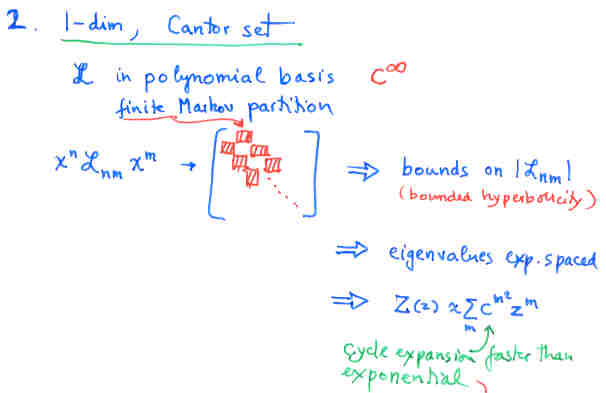 2. 1-dim, Cantor set
ℒ in polynomial basis C^∞
finite Markov partition
x^n ℒ_nm x^m → [ ] ⇒ bounds on |ℒ_nm|
(bounded hyperbolicity)
⇒ eigenvalues exp. spaced
⇒ Z(z) ≈ Σ_m C^{m^2} z^m
cycle expansion faster than
exponential